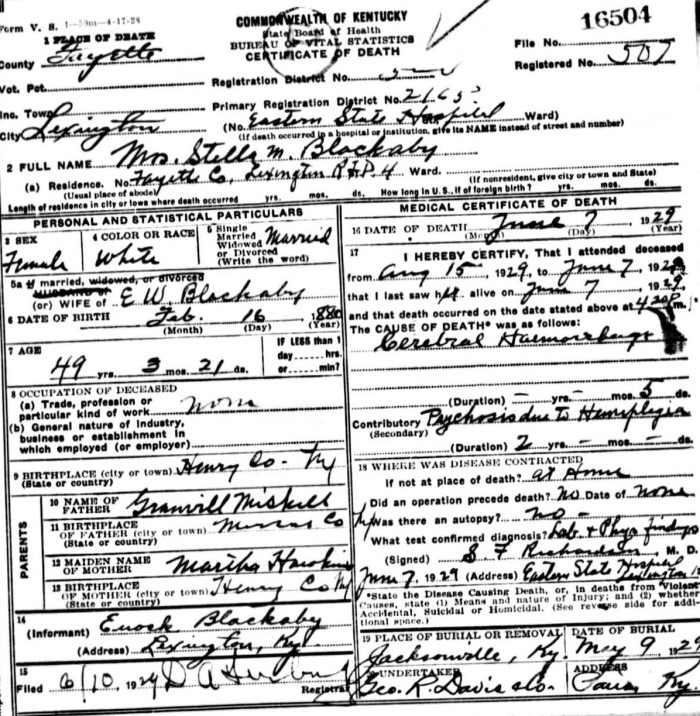 Form V. S. 1-50m-4-17-28
COMMONWEALTH OF KENTUCKY
State Board of Health
BUREAU OF VITAL STATISTICS
CERTIFICATE OF DEATH
16504
File No.
Registered No. 507
1 PLACE OF DEATH
County Fayette
Vot. Pct.
Registration District No.
Inc. Town
Primary Registration District No. 2165
City Lexington
(No. Eastern State Hospital Ward)
(If death occurred in a hospital or institution, give its NAME instead of street and number)
2 FULL NAME Mrs. Stella M. Blackaby
(a) Residence. No. Fayette Co, Lexington R.F.D. 4 Ward.
(Usual place of abode)
(If nonresident, give city or town and State)
Length of residence in city or town where death occurred yrs. mos. ds. How long in U. S., if of foreign birth? yrs. mos. ds.
PERSONAL AND STATISTICAL PARTICULARS
3 SEX
Female
4 COLOR OR RACE
White
5 Single
Married
Widowed
or Divorced
(Write the word)
Married
5a If married, widowed, or divorced
HUSBAND of
(or) WIFE of E W. Blackaby
6 DATE OF BIRTH Feb. 16, 1880
(Month) (Day) (Year)
7 AGE
49 yrs. 3 mos. 21 ds.
IF LESS than 1
day hrs.
or min?
8 OCCUPATION OF DECEASED
(a) Trade, profession or
particular kind of work none
(b) General nature of industry,
business or establishment in
which employed (or employer)
9 BIRTHPLACE (city or town) Henry Co - Ky
(State or country)
PARENTS
10 NAME OF
FATHER Granvill
11 BIRTHPLACE
OF FATHER (city or town) Co
(State or country)
12 MAIDEN NAME
OF MOTHER Martha
13 BIRTHPLACE
OF MOTHER (city or town) Henry Co Ky
(State or country)
14
(Informant) Enock Blackaby
(Address) Lexington, Ky.
15
Filed 6/10, 1929
Registrar
MEDICAL CERTIFICATE OF DEATH
16 DATE OF DEATH June 7 1929
(Month) (Day) (Year)
17
I HEREBY CERTIFY, That I attended deceased
from Aug 15, 1929, to June 7, 1929
that I last saw her alive on June 7, 1929,
and that death occurred on the date stated above at 4 30 P m.
The CAUSE OF DEATH* was as follows:
Cerebral Haemorrhage
(Duration) - yrs. - mos. 5 ds.
Contributory Psychosis due to Hemiplegia
(Secondary)
(Duration) 2 yrs. - mos. - ds.
18 WHERE WAS DISEASE CONTRACTED
If not at place of death? at Home
Did an operation precede death? No. Date of None
Was there an autopsy? no -
What test confirmed diagnosis? Lab. + Phys findings
(Signed) S F Richardson, M. D.
June 7, 1929 (Address) Eastern State Hospital
Lexington
*State the Disease Causing Death, or, in deaths from Violent
Causes, state (1) Means and nature of Injury; and (2) whether
Accidental, Suicidal or Homicidal. (See reverse side for addi-
tional space.)
19 PLACE OF BURIAL OR REMOVAL
Jacksonville, Ky.
DATE OF BURIAL
May 9, 1929
20 UNDERTAKER
Geo. R. Davis
ADDRESS
Paris, Ky.